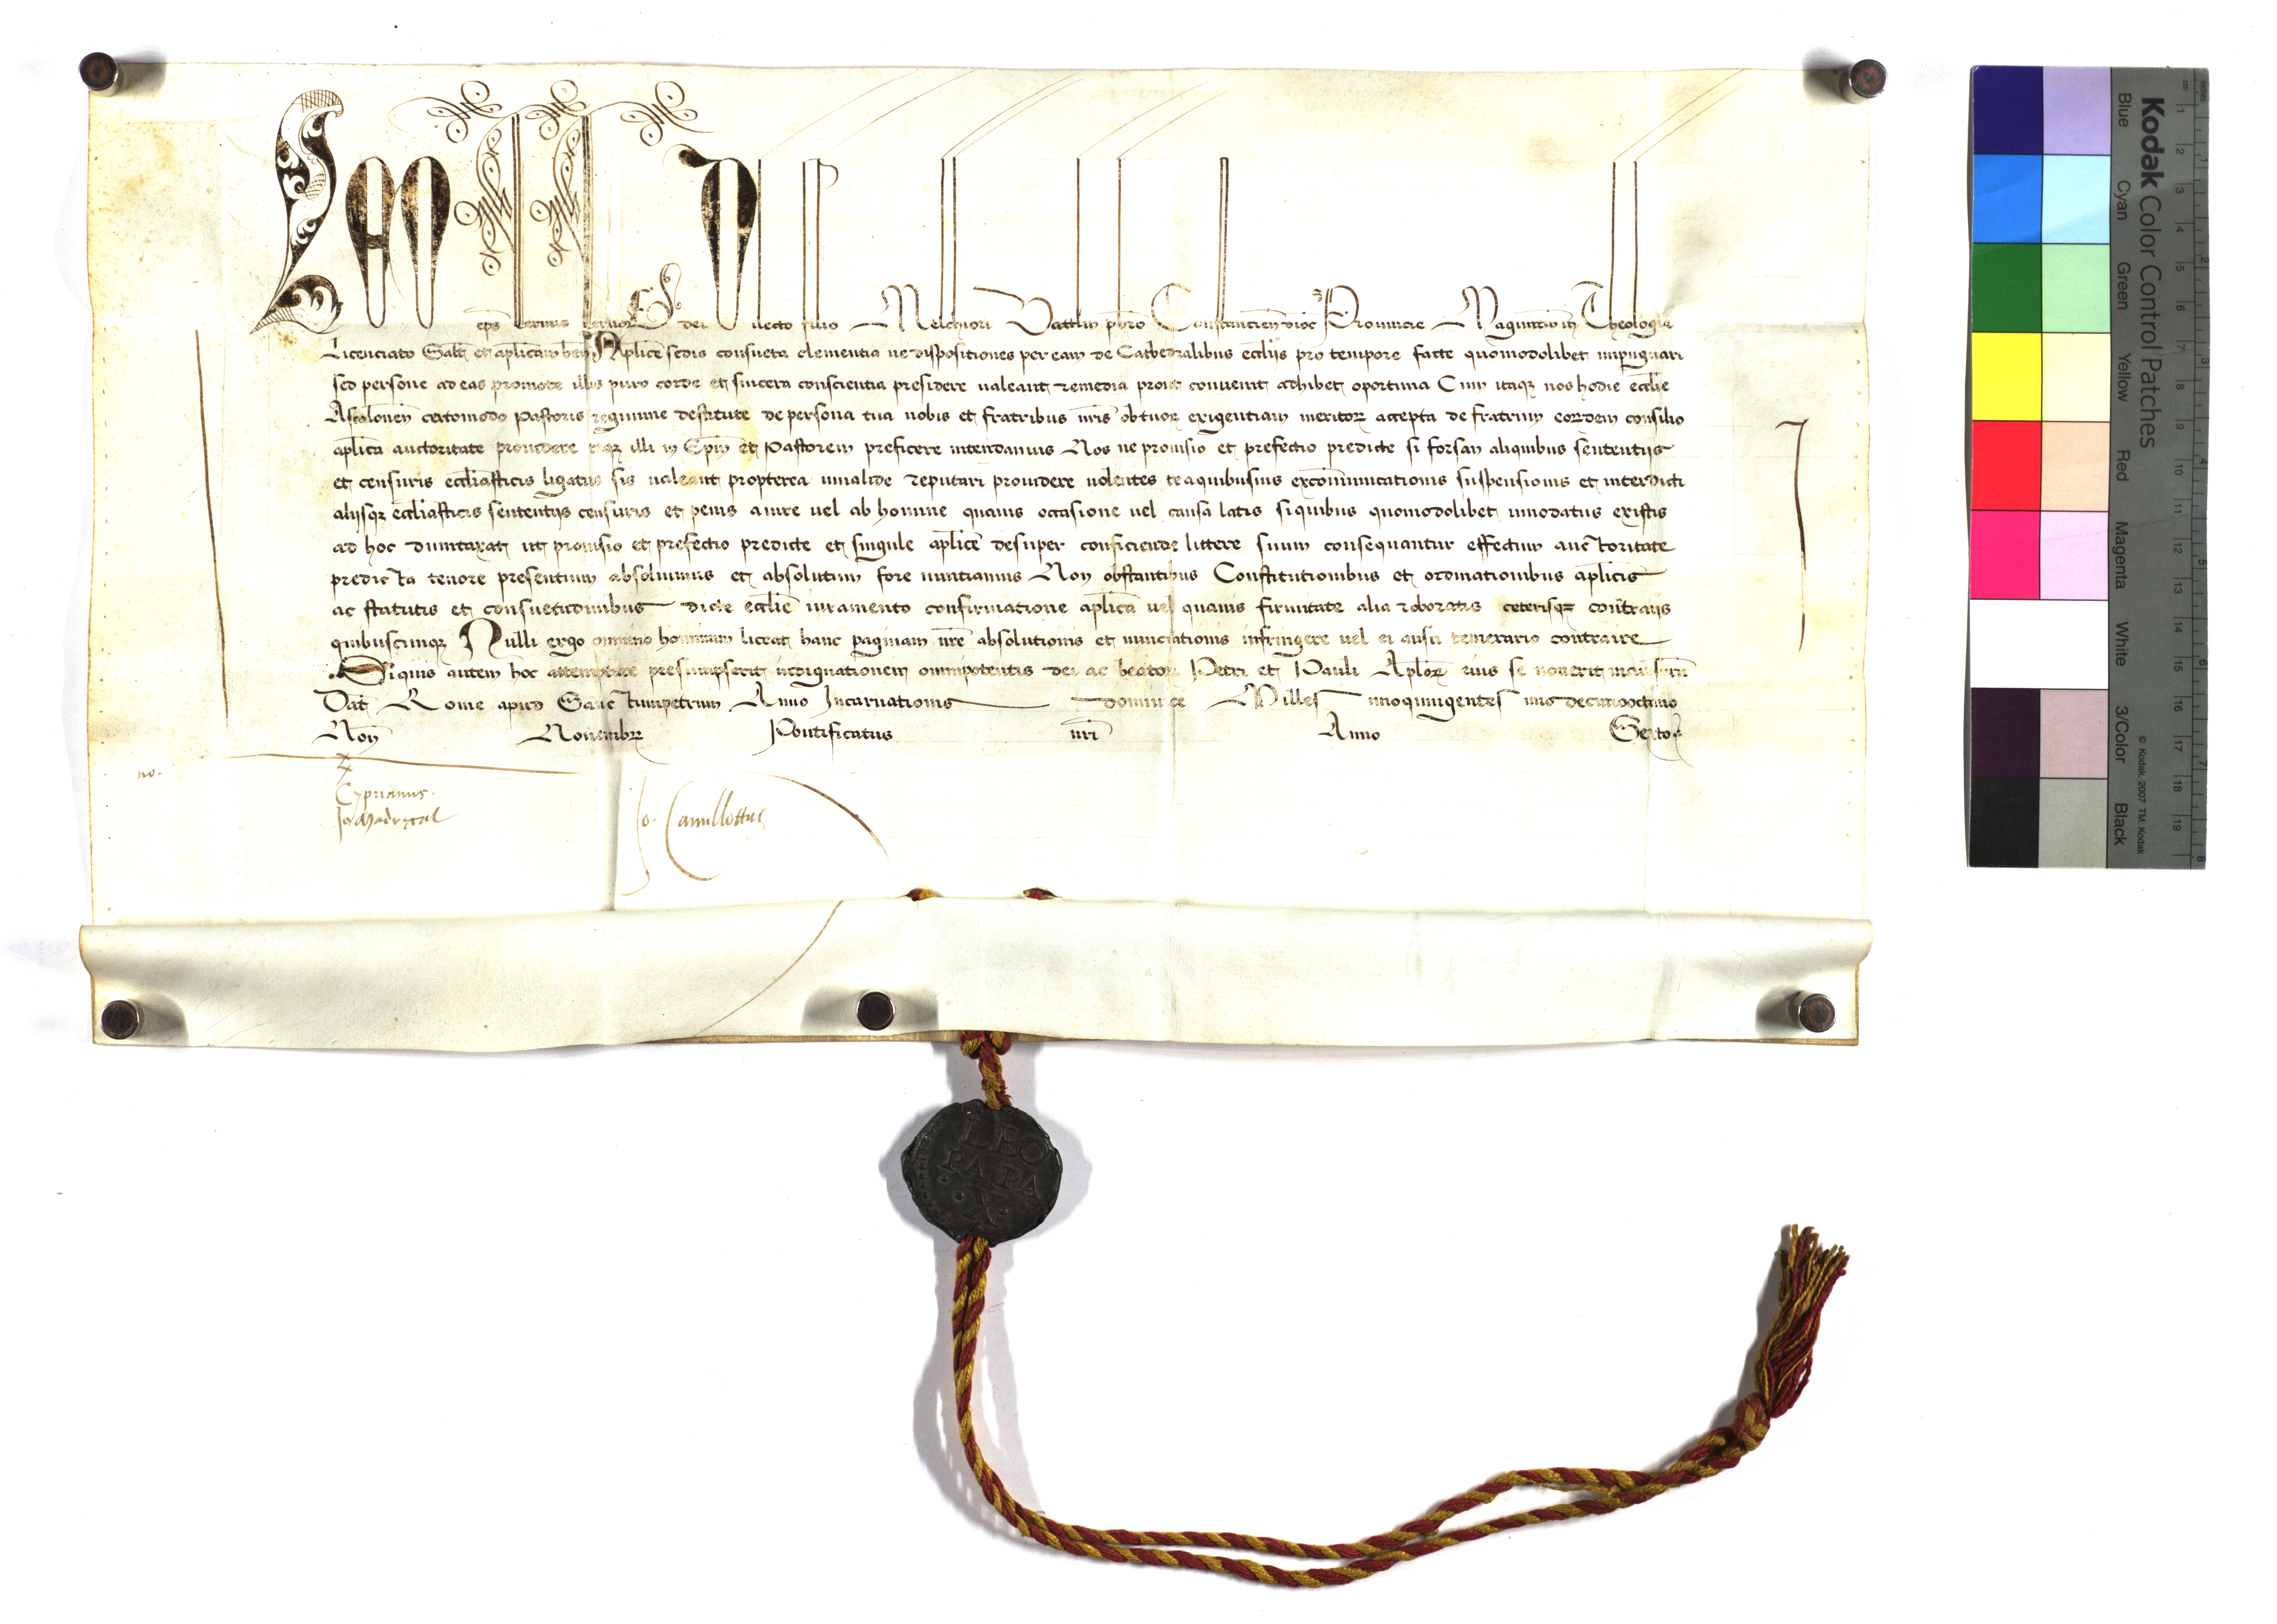 Leo eps seruus seruor dei Dilecto filio Melchiori Vattlin pbro Constancien dioc Prouincie Maguntin in Theologia
Licenciato Salt et aplicam ben Aplice sedis consueta clementia ne dispositiones per eam de Cathedralibus eccliis pro tempore facte quomodolibet impugnari
sed persone ad eas promote illis puro corde et sincera conscientia presidere ualeant remedia prout conuenit adhibet oportuna Cum itaqz nos hodie ecclie
Ascalonen certomodo Pastoris regimine destitute de persona tua nobis et fratribus nris ob tuor exigentiam meritor accepta de fratrum eordem consilio
aplica auctoritate prouidere teqz illi in Epm et Pastorem preficere intendamus Nos ne prouisio et prefectio predicte si forsan aliquibus sententiis
et censuris eccliasticis ligatus sis ualeant propterea inualide reputari prouidere uolentes te a quibusuis excommunicationis suspensionis et interdicti
aliisqz eccliasticis sententiis censuris et penis a iure uel ab homine quauis occasione uel causa latis si quibus quomodolibet innodatus existis
ad hoc dumtaxat ut prouisio et prefectio predicte et singule aplice desuper conficiende littere suum consequantur effectum auctoritate
predicta tenore presentium absoluimus et absolutum fore nuntiamus Non obstantibus Constitutionibus et ordinationibus aplicis
ac statutis et consuetudinibus dicte ecclie iuramento confirmatione aplica uel quauis firmitate alia roboratis ceterisqz contrariis
quibuscunqz Nulli ergo omnino hominum liceat hanc paginam nre absolutionis et nunciationis infringere uel ei ausu temerario contraire
Siquis autem hoc attemptare presumpserit indignationem omnipotentis dei ac beator Petri et Pauli Aplor eius se nouerit incursurum
Dat Rome apud Sanctumpetrum Anno Incarnationis dominice Milles imoquingentes imo decimooctauo
Non Nouembr Pontificatus nri Anno Sexto
no.
Cyprianus.
Jo Madrigal
Jo. Camillottus
LEO
PA PA
X
Kodak Color Control Patches
© Kodak, 2007 TM: Kodak
Blue Cyan Green Yellow Red Magenta White 3/Color Black
inches 1 2 3 4 5 6 7 8
cm 1 2 3 4 5 6 7 8 9 10 11 12 13 14 15 16 17 18 19